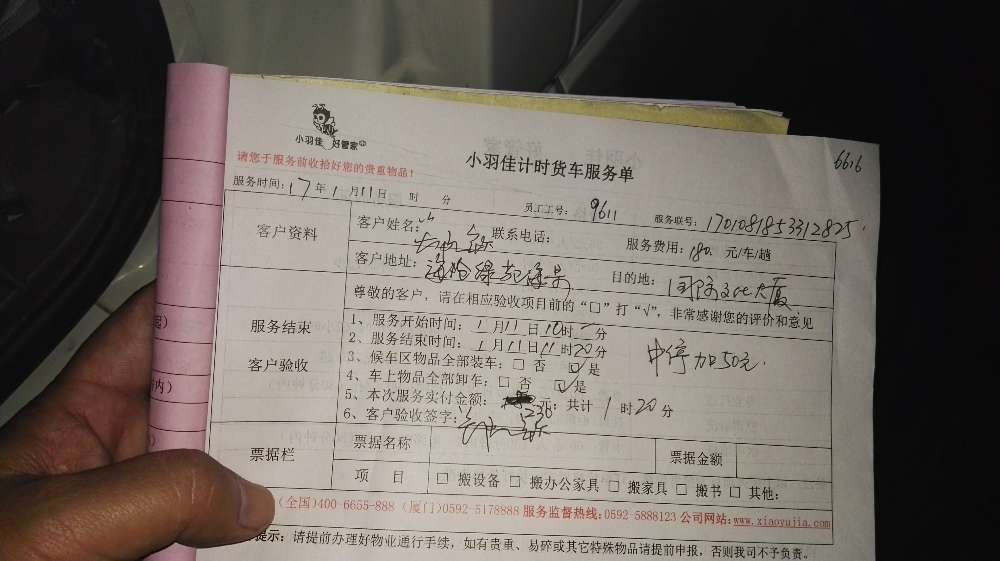 小羽佳 好管家
小羽佳计时货车服务单
6616
请您于服务前收拾好您的贵重物品!
服务时间: 17年1月11日 时 分 员工工号: 9611 服务联号: 1701081853312825
客户资料
客户姓名: 联系电话: 服务费用: 180. 元/车/趟
客户地址: 目的地: 国际文化大厦
服务结束
客户验收
尊敬的客户,请在相应验收项目前的“□”打“√”,非常感谢您的评价和意见
1、服务开始时间: 1月11日10时 分
2、服务结束时间: 1月11日11时20分
中停加50元.
3、候车区物品全部装车: □ 否 ☑ 是
4、车上物品全部卸车: □ 否 ☑ 是
5、本次服务实付金额: 230 元; 共计 1时20分
6、客户验收签字:
票据栏
票据名称 票据金额
项 目 □ 搬设备 □ 搬办公家具 □ 搬家具 □ 搬书 □ 其他:
(全国)400-6655-888 (厦门)0592-5178888 服务监督热线:0592-5888123 公司网站: www.xiaoyujia.com
提示: 请提前办理好物业通行手续,如有贵重、易碎或其它特殊物品请提前申报,否则我司不予负责。